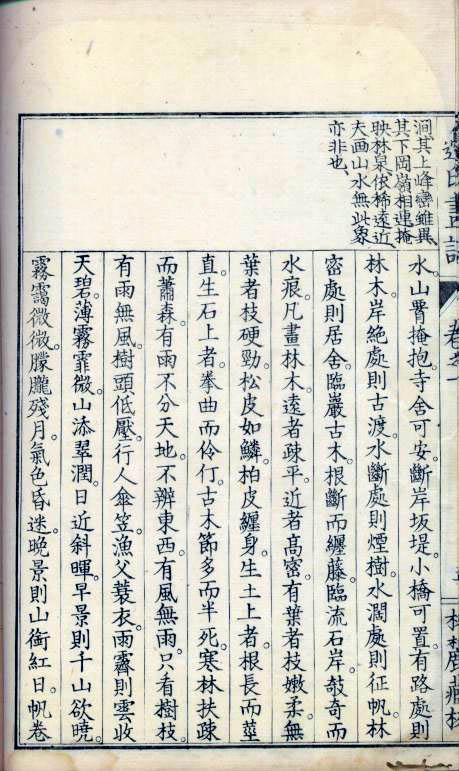 澗其上峰巒雖異
其下岡嶺相連掩
映林泉依稀遠近
夫画山水無此象
亦非也
水山罾掩抱寺舍可安斷岸坂堤小橋可置有路處則
林木岸絶處則古渡水斷處則煙樹水濶處則征帆林
密處則居舍臨巖古木根斷而纏藤臨流石岸攲奇而
水痕凡畫林木遠者疎平近者高密有葉者枝嫩柔無
葉者枝硬勁松皮如鱗柏皮纏身生土上者根長而莖
直生石上者拳曲而伶仃古木節多而半死寒林扶疎
而蕭森有雨不分天地不辨東西有風無雨只看樹枝
有雨無風樹頭低壓行人傘笠漁父蓑衣雨霽則雲收
天碧薄霧霏微山添翠潤日近斜暉早景則千山欲曉
霧靄微微朦朧殘月氣色昏迷晩景則山銜紅日帆卷